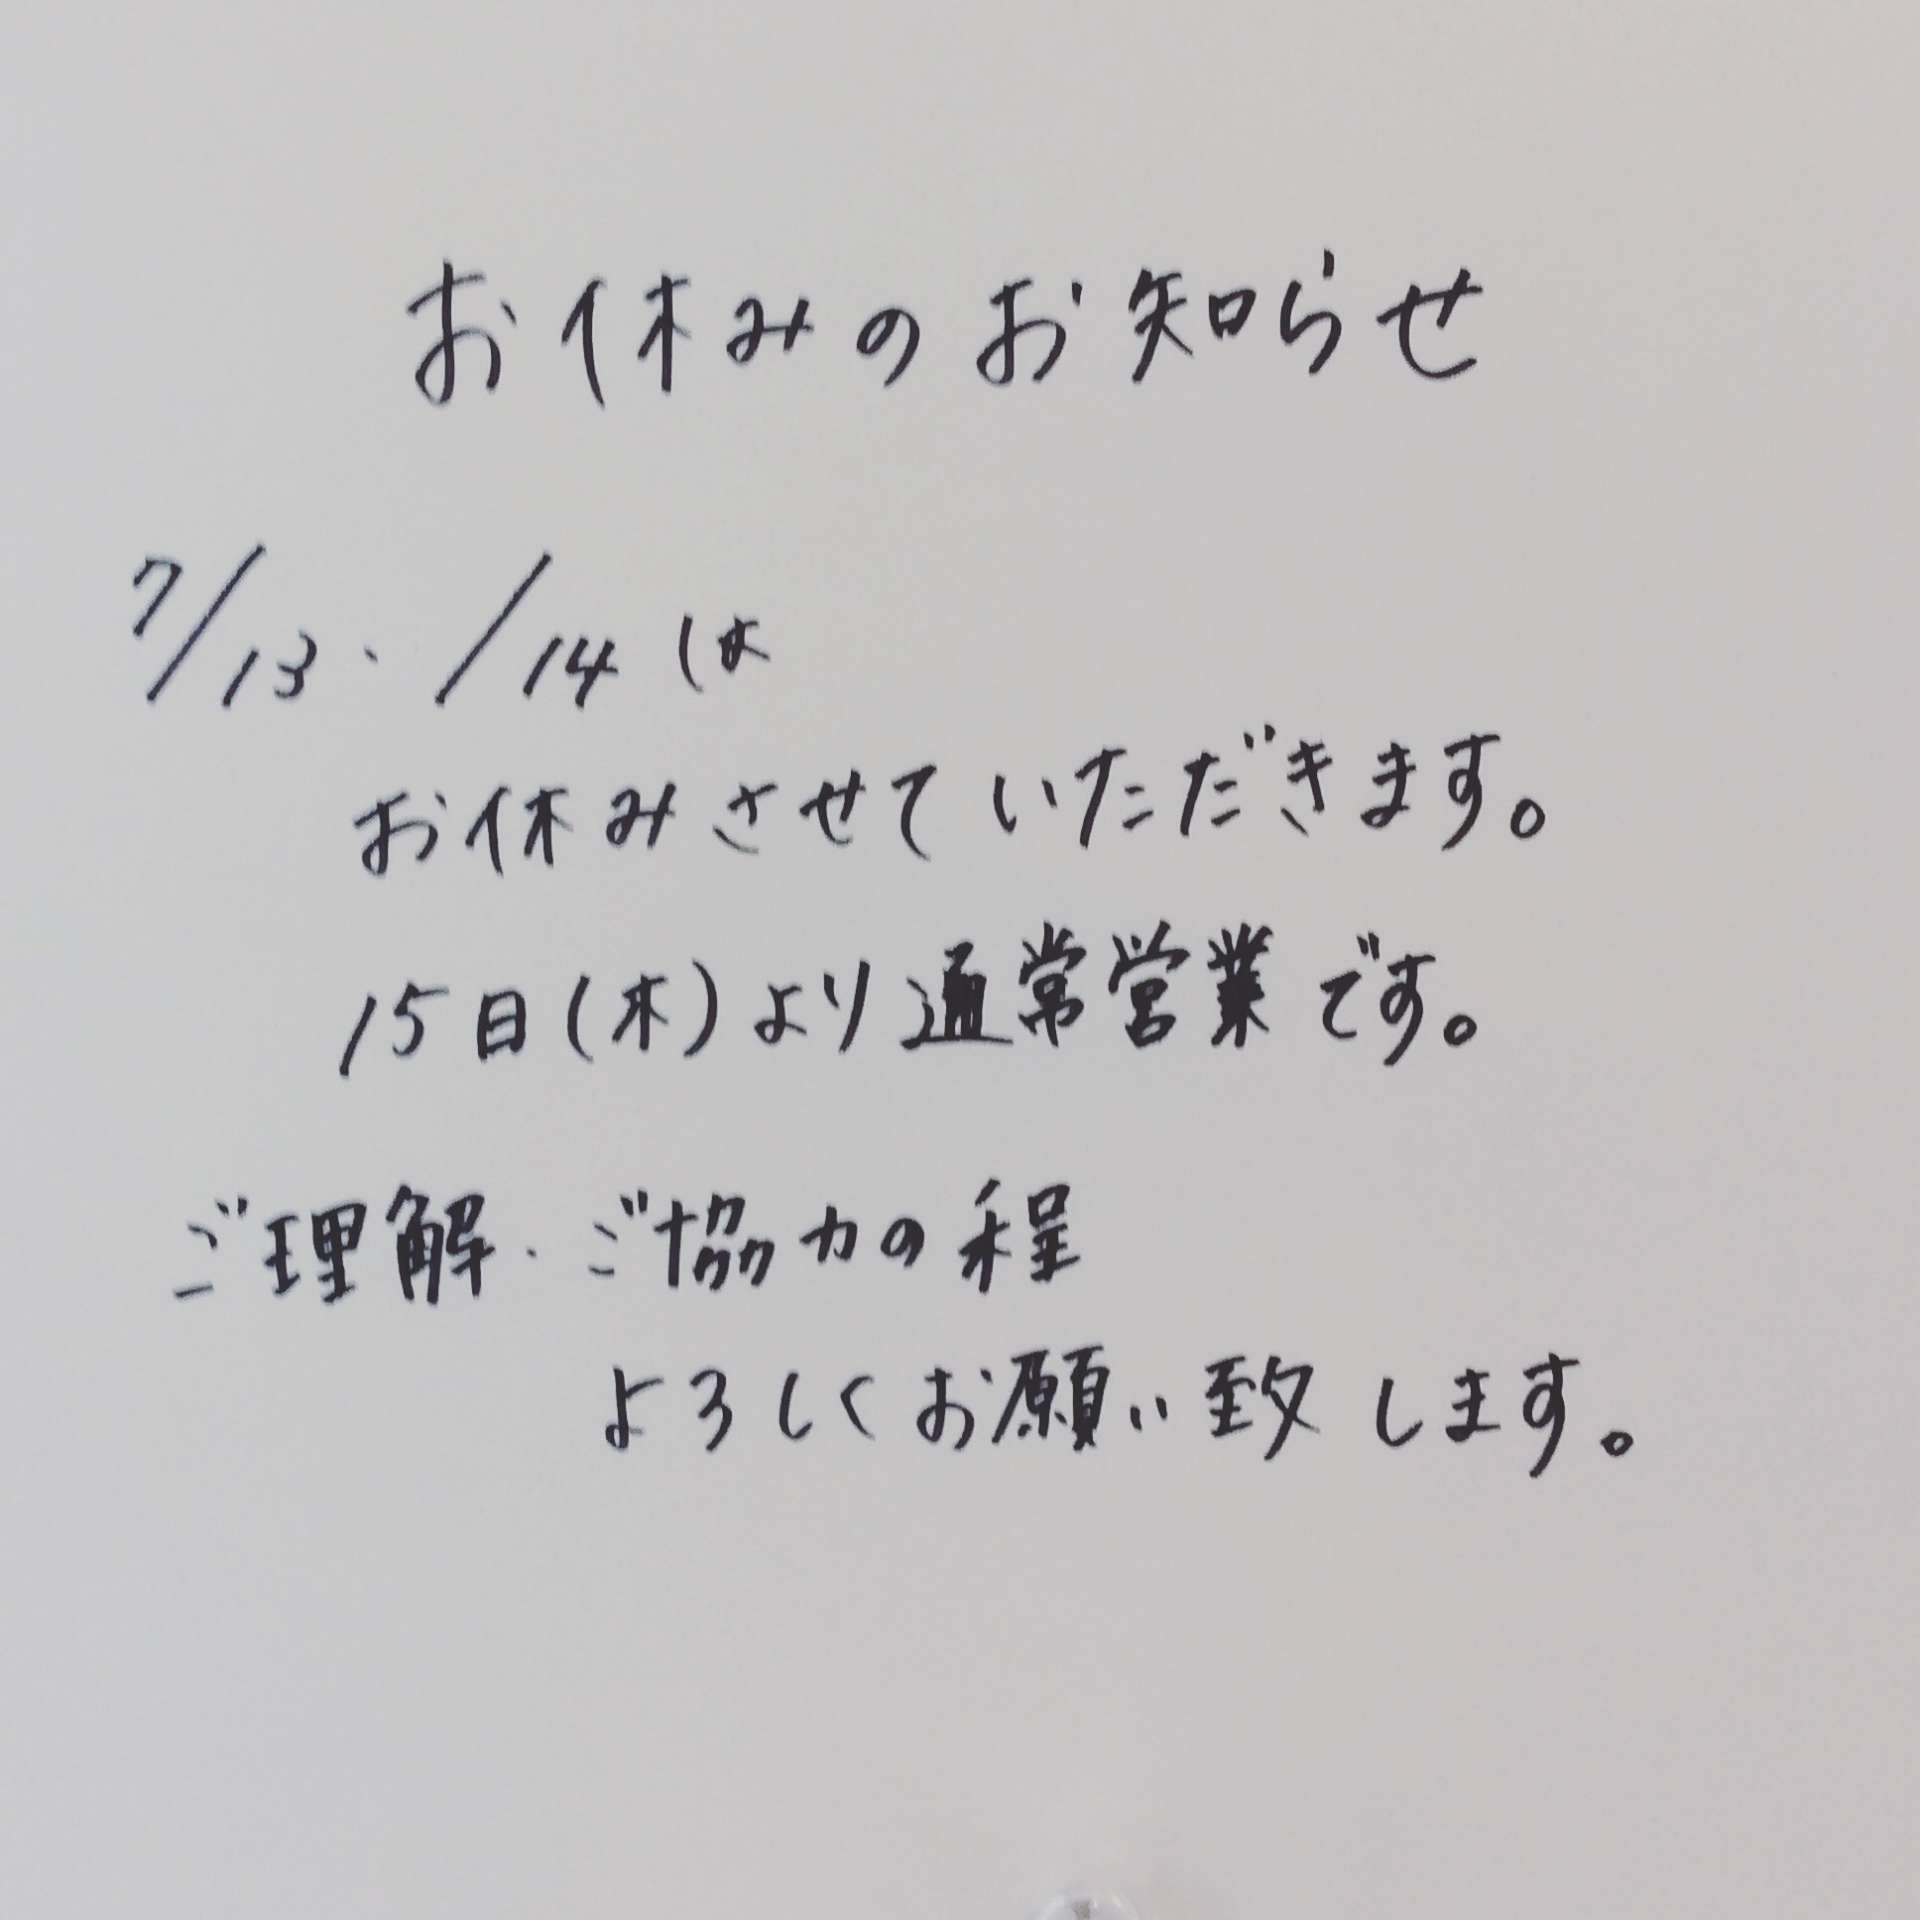 お休みのお知らせ
7/13・/14は
お休みさせていただきます。
15日(木)より通常営業です。
ご理解・ご協力の程
よろしくお願い致します。